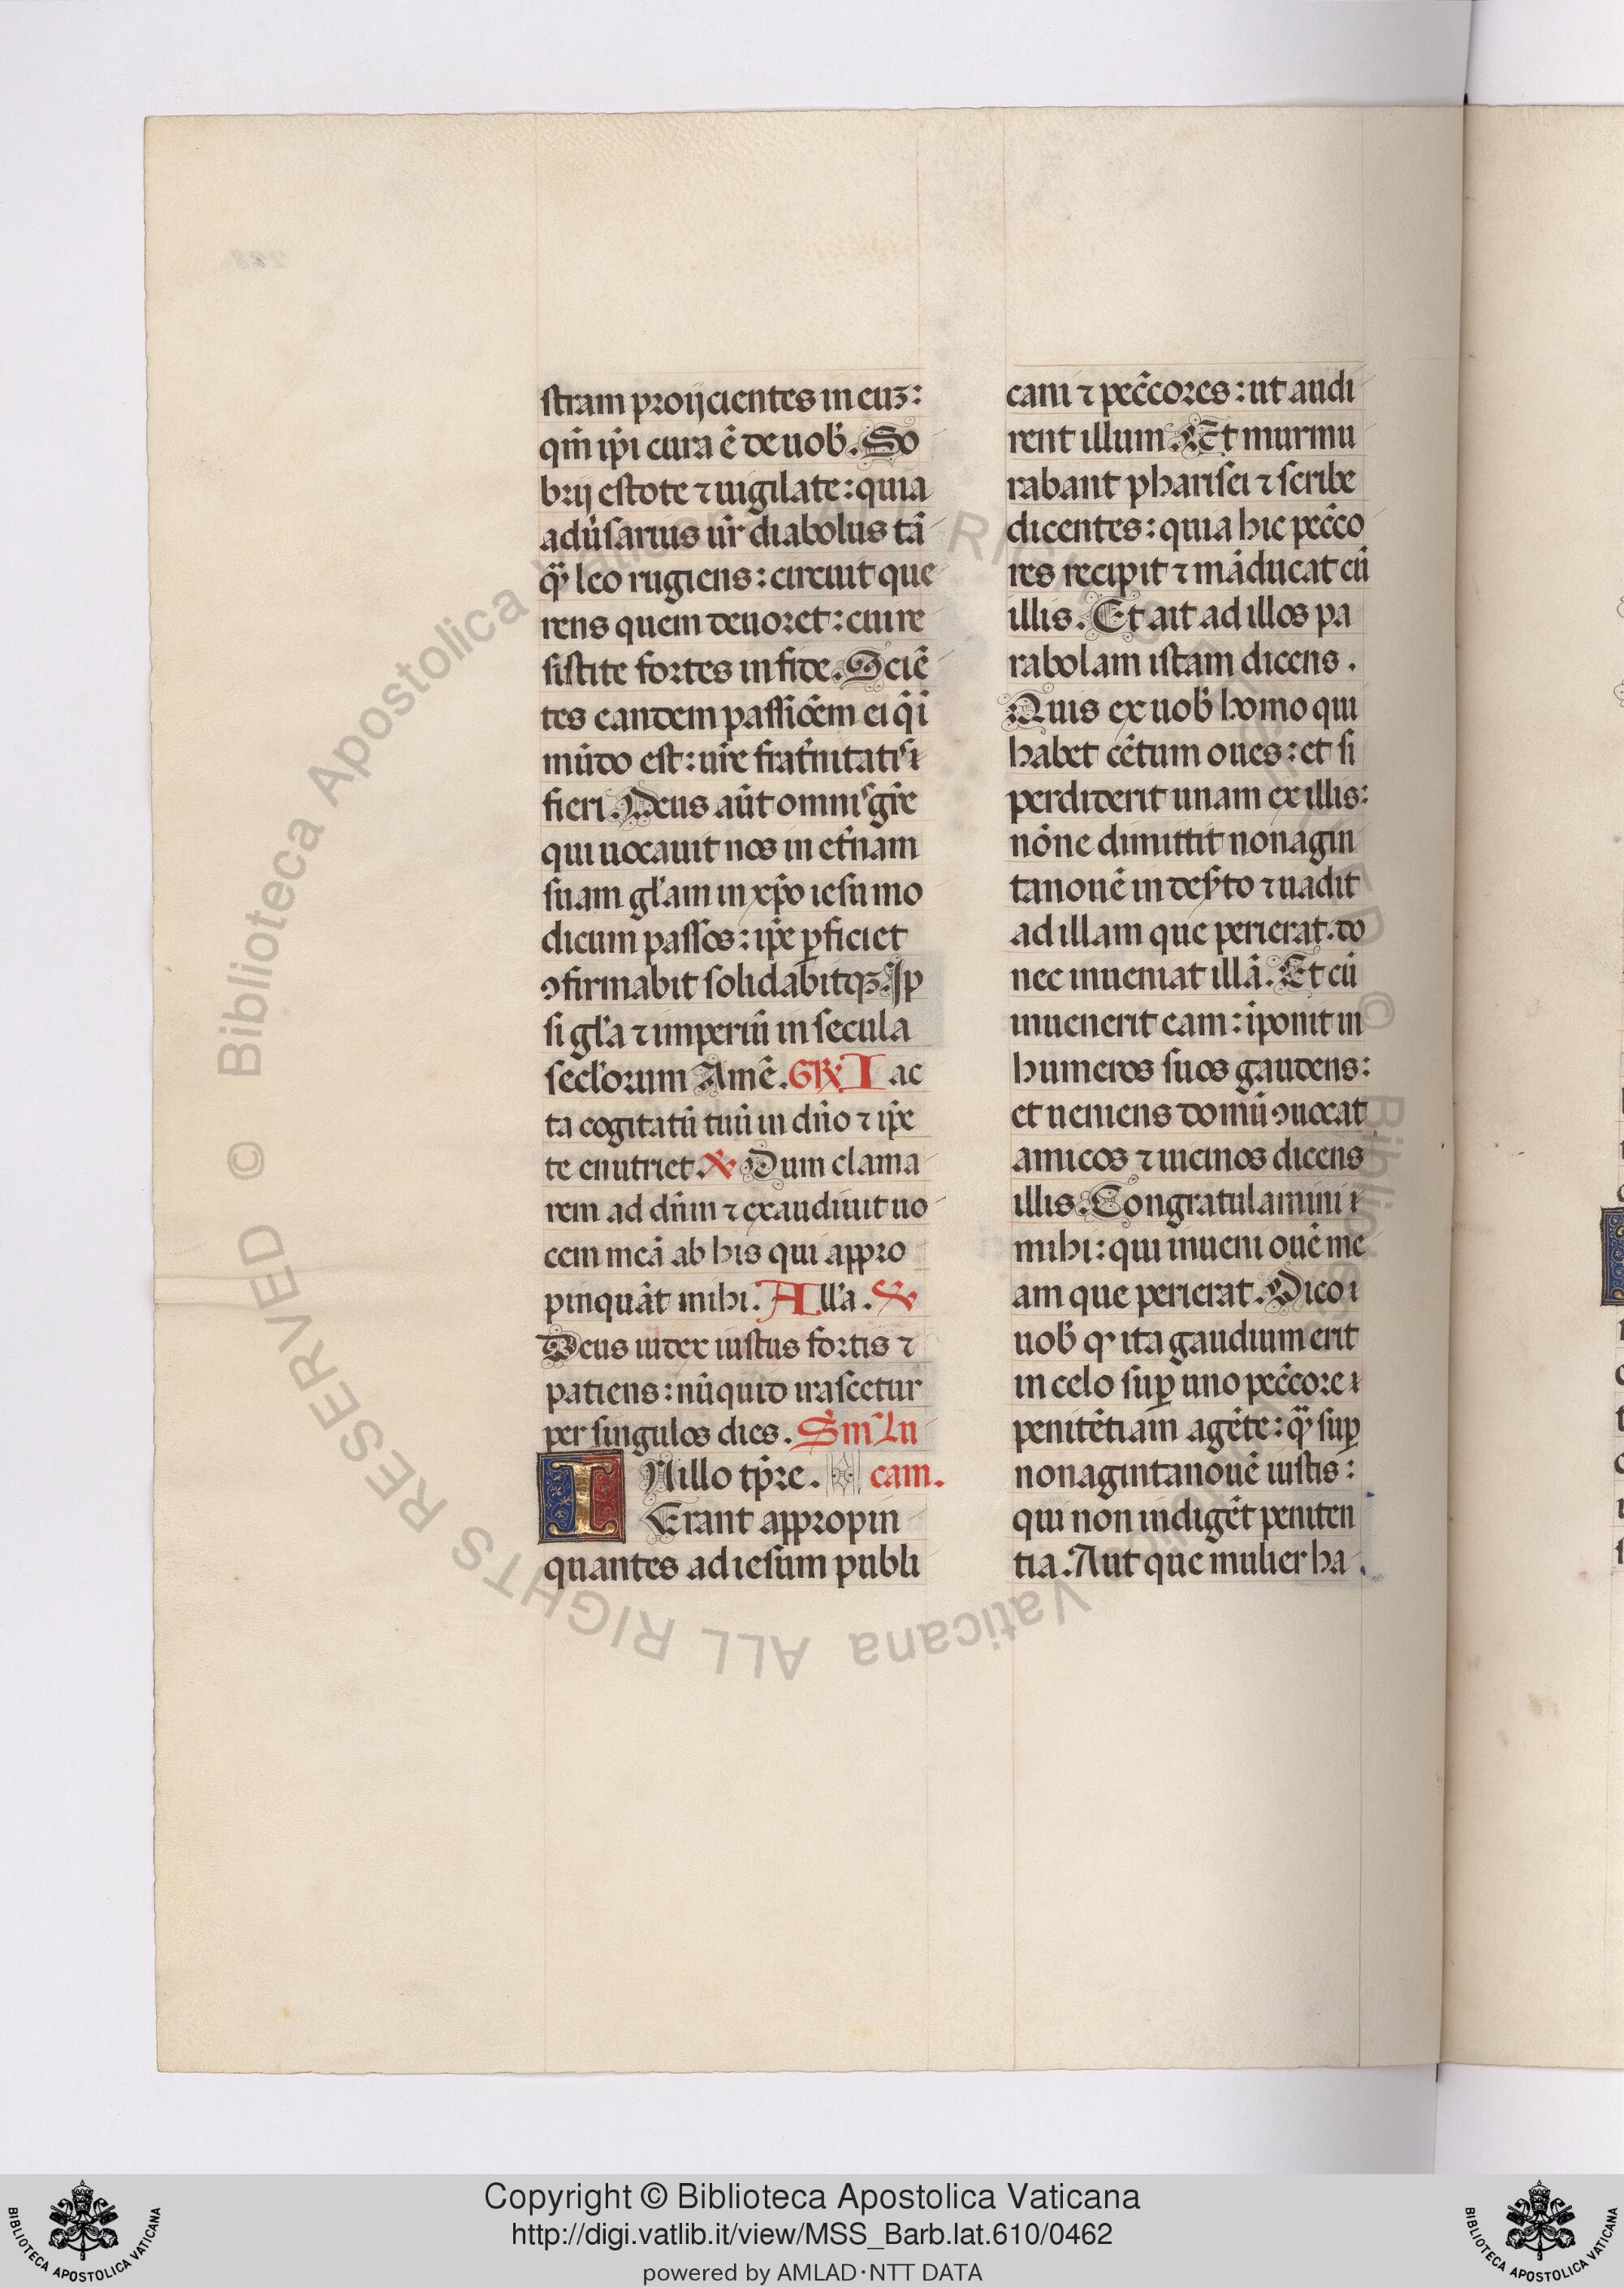 stram proijcientes in euʒ:
qm̃ ip̃i cura ẽ de uob̾. So
brij estote ⁊ uigilate: quia
adu̾sarius ur̃ diabolus tã
qȝ̃ leo rugiens: circuit que
rens quem deuoret: cui re
sistite fortes in fide. Sciẽ
tes eandem passiõem ei q̃ ĩ
mũdo est: ur̃e frat̾nitatiˢ
fieri. Deus aũt omniˢ gr̃e
qui uocauit nos in et̾nam
suam gl̃am in xp̃o iesu mo
dicum passos: ip̃e ꝑficiet
ꝯfirmabit solidabitqȝ. Ip
si gl̃a ⁊ imperiũ in secula
secl̃orum Amẽ. GR Iac
ta cogitatũ tuũ in dño ⁊ ip̃e
te enutriet. ℣ Dum clama
rem ad dñm ⁊ exaudiuit uo
cem meã ab his qui appro
pinquãt mihi. All̃a. ℣
Deus iudex iustus fortis ⁊
patiens: nũquid irascetur
per singulos dies. Sm̃ Lu
IN illo tp̃re. cam.
Erant appropin
quantes ad iesum publi
cani ⁊ pec̃cores: ut audi
rent illum. Et murmu
rabant pharisei ⁊ scribe
dicentes: quia hic pec̃co
res recipit ⁊ mãducat cũ
illis. Et ait ad illos pa
rabolam istam dicens.
Quis ex uob̾ homo qui
habet cẽtum oues: et si
perdiderit unam ex illis:
nõne dimittit nonagin
tanouẽ in des̾to ⁊ uadit
ad illam que perierat. do
nec inueniat illã. Et cũ
inuenerit eam: ĩponit in
humeros suos gaudens:
et ueniens domũ ꝯuocat
amicos ⁊ uicinos dicens
illis. Congratulamini
mihi: qui inueni ouẽ me
am que perierat. Dico
uob̾ qꝛ ita gaudium erit
in celo suꝑ uno pec̃core
penitẽtiam agẽte: qȝ̃ suꝑ
nonagintanouẽ iustis:
qui non indigẽt peniten
tia. Aut que mulier ha
Copyright © Biblioteca Apostolica Vaticana
http://digi.vatlib.it/view/MSS_Barb.lat.610/0462
powered by AMLAD·NTT DATA
BIBLIOTECA APOSTOLICA VATICANA
BIBLIOTECA APOSTOLICA VATICANA
© Biblioteca Apostolica Vaticana ALL RIGHTS RESERVED